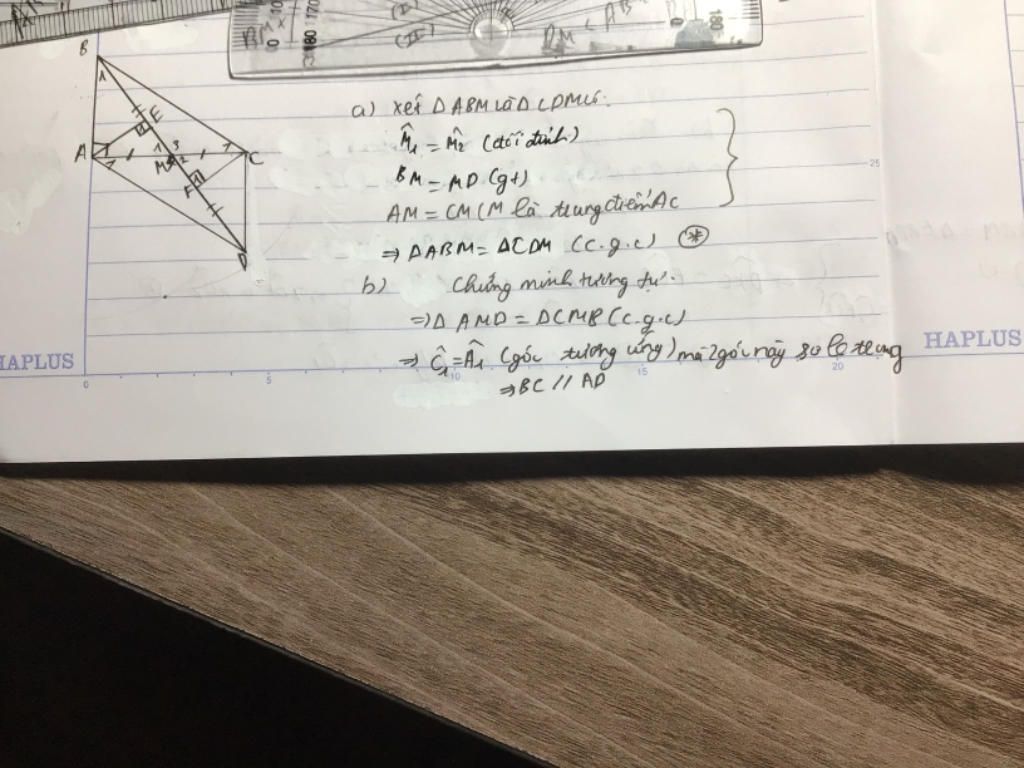 B
A
E
M
C
F
D
a) Xét Δ ABM và Δ CDM có:
M̂₁ = M̂₂ (đối đỉnh)
BM = MD (gt)
AM = CM (M là trung điểm AC
⇒ ΔABM = ΔCDM (c.g.c) (*)
b) Chứng minh tương tự:
⇒ Δ AMD = ΔCMB (c.g.c)
⇒ Ĉ₁ = Â₁ (góc tương ứng) mà 2 góc này so le trong
⇒ BC // AD
HAPLUS
HAPLUS
0 5 10 15 20
25